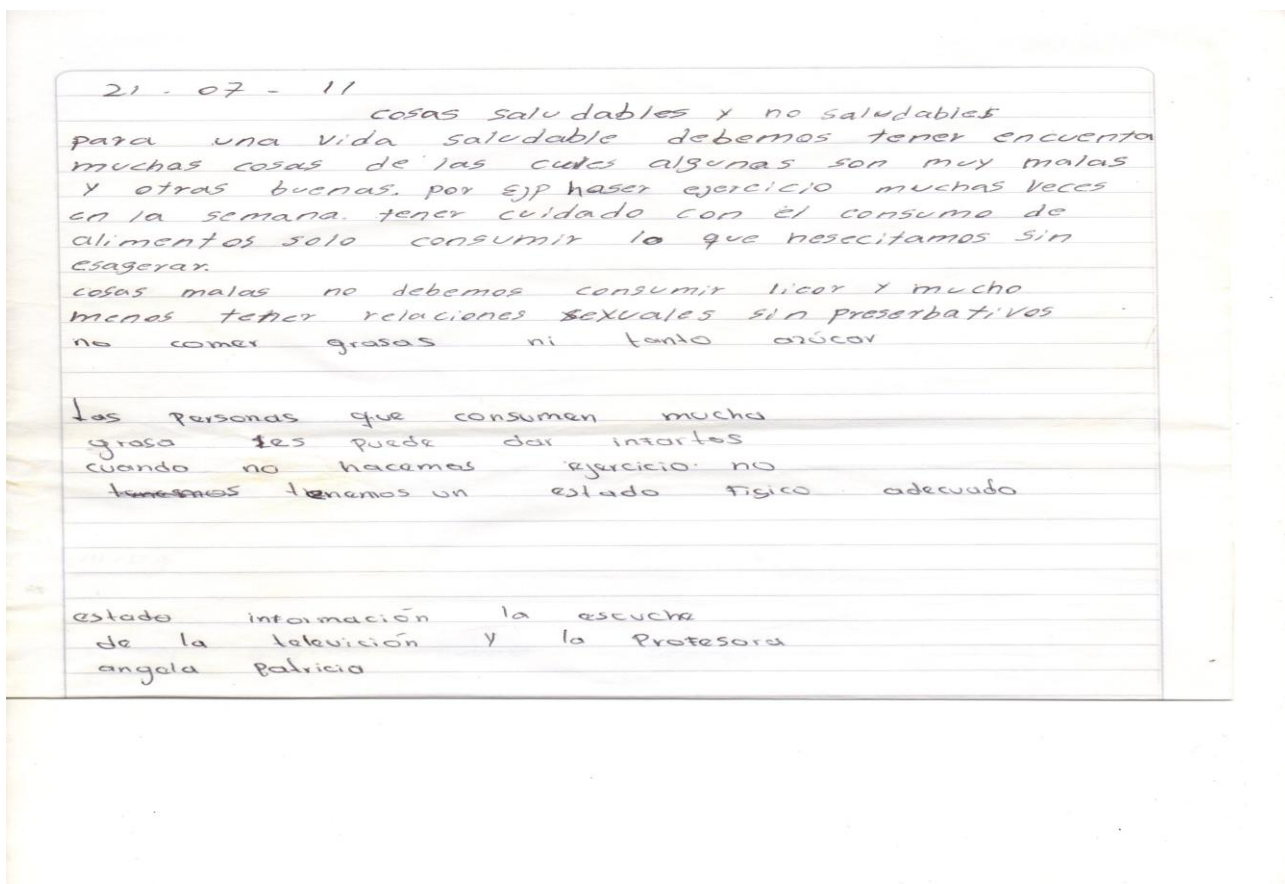 21 - 07 - 11
cosas saludables y no saludables
para una vida saludable debemos tener encuenta
muchas cosas de las cules algunas son muy malas
y otras buenas. por EJP haser ejercicio muchas veces
en la semana. tener cuidado con el consumo de
alimentos solo consumir lo que nesecitamos sin
esagerar.
cosas malas no debemos consumir licor y mucho
menos tener relaciones sexuales sin preserbativos
no comer grasas ni tanto azúcar
Las personas que consumen mucha
grasa les puede dar infartos
cuando no hacemos ejercicio no
tenemos un estado fisico adecuado
estado información la escuche
de la televición y la Profesora
angela Patricia